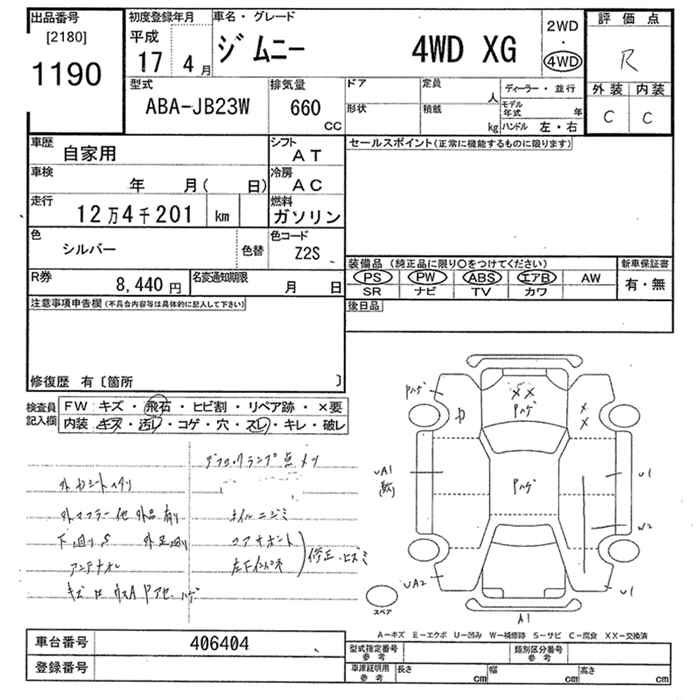 出品番号
[2180]
1190
初度登録年月
平成
17
4月
車名・グレード
ジムニー 4WD XG
2WD
・
4WD
評価点
R
外装 内装
C C
型式
ABA-JB23W
排気量
660
CC
ドア
定員
人
形状
積載
kg
ディーラー・並行
モデル年式
年
ハンドル 左・右
車歴
自家用
シフト
AT
車検
年 月( 日)
冷房
AC
走行
12万4千201 km
燃料
ガソリン
色
シルバー
色替
色コード
Z2S
R券
8,440円
名変通知期限
月 日
セールスポイント(正常に機能するものに限ります)
装備品(純正品に限り○をつけてください)
PS PW ABS エアB AW
SR ナビ TV カワ
新車保証書
有・無
後日品
注意事項申告欄(不具合内容等は具体的に記入して下さい)
修復歴 有〔箇所 〕
検査員記入欄
FW:キズ・飛石・ヒビ割・リペア跡・×要
内装:キズ・汚レ・コゲ・穴・スレ・キレ・破レ
外マフラー他外品有り
下廻りS
アンテナ
オイルニジミ
コアサポート
修正・ヒズミ
Pハゲ
Pハゲ
Pハゲ
××
×
×
UA1
UA2
U1
U2
U1
A1
スペア
A-キズ E-エクボ U-凹み W-補修跡 S-サビ C-腐食 XX-交換済
車台番号
406404
登録番号
型式指定番号
参考
類別区分番号
参考
車庫証明用
参考
長さ
cm
幅
cm
高さ
cm